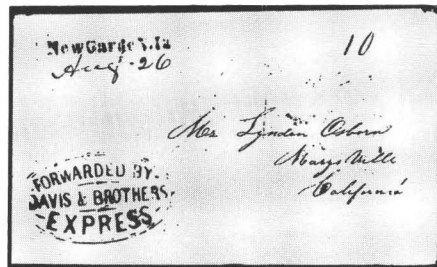 New Garden. Ia
Aug. 26
10
Mrs Lynden Osborn
Marysville
California
FORWARDED BY.
DAVIS & BROTHERS.
EXPRESS.